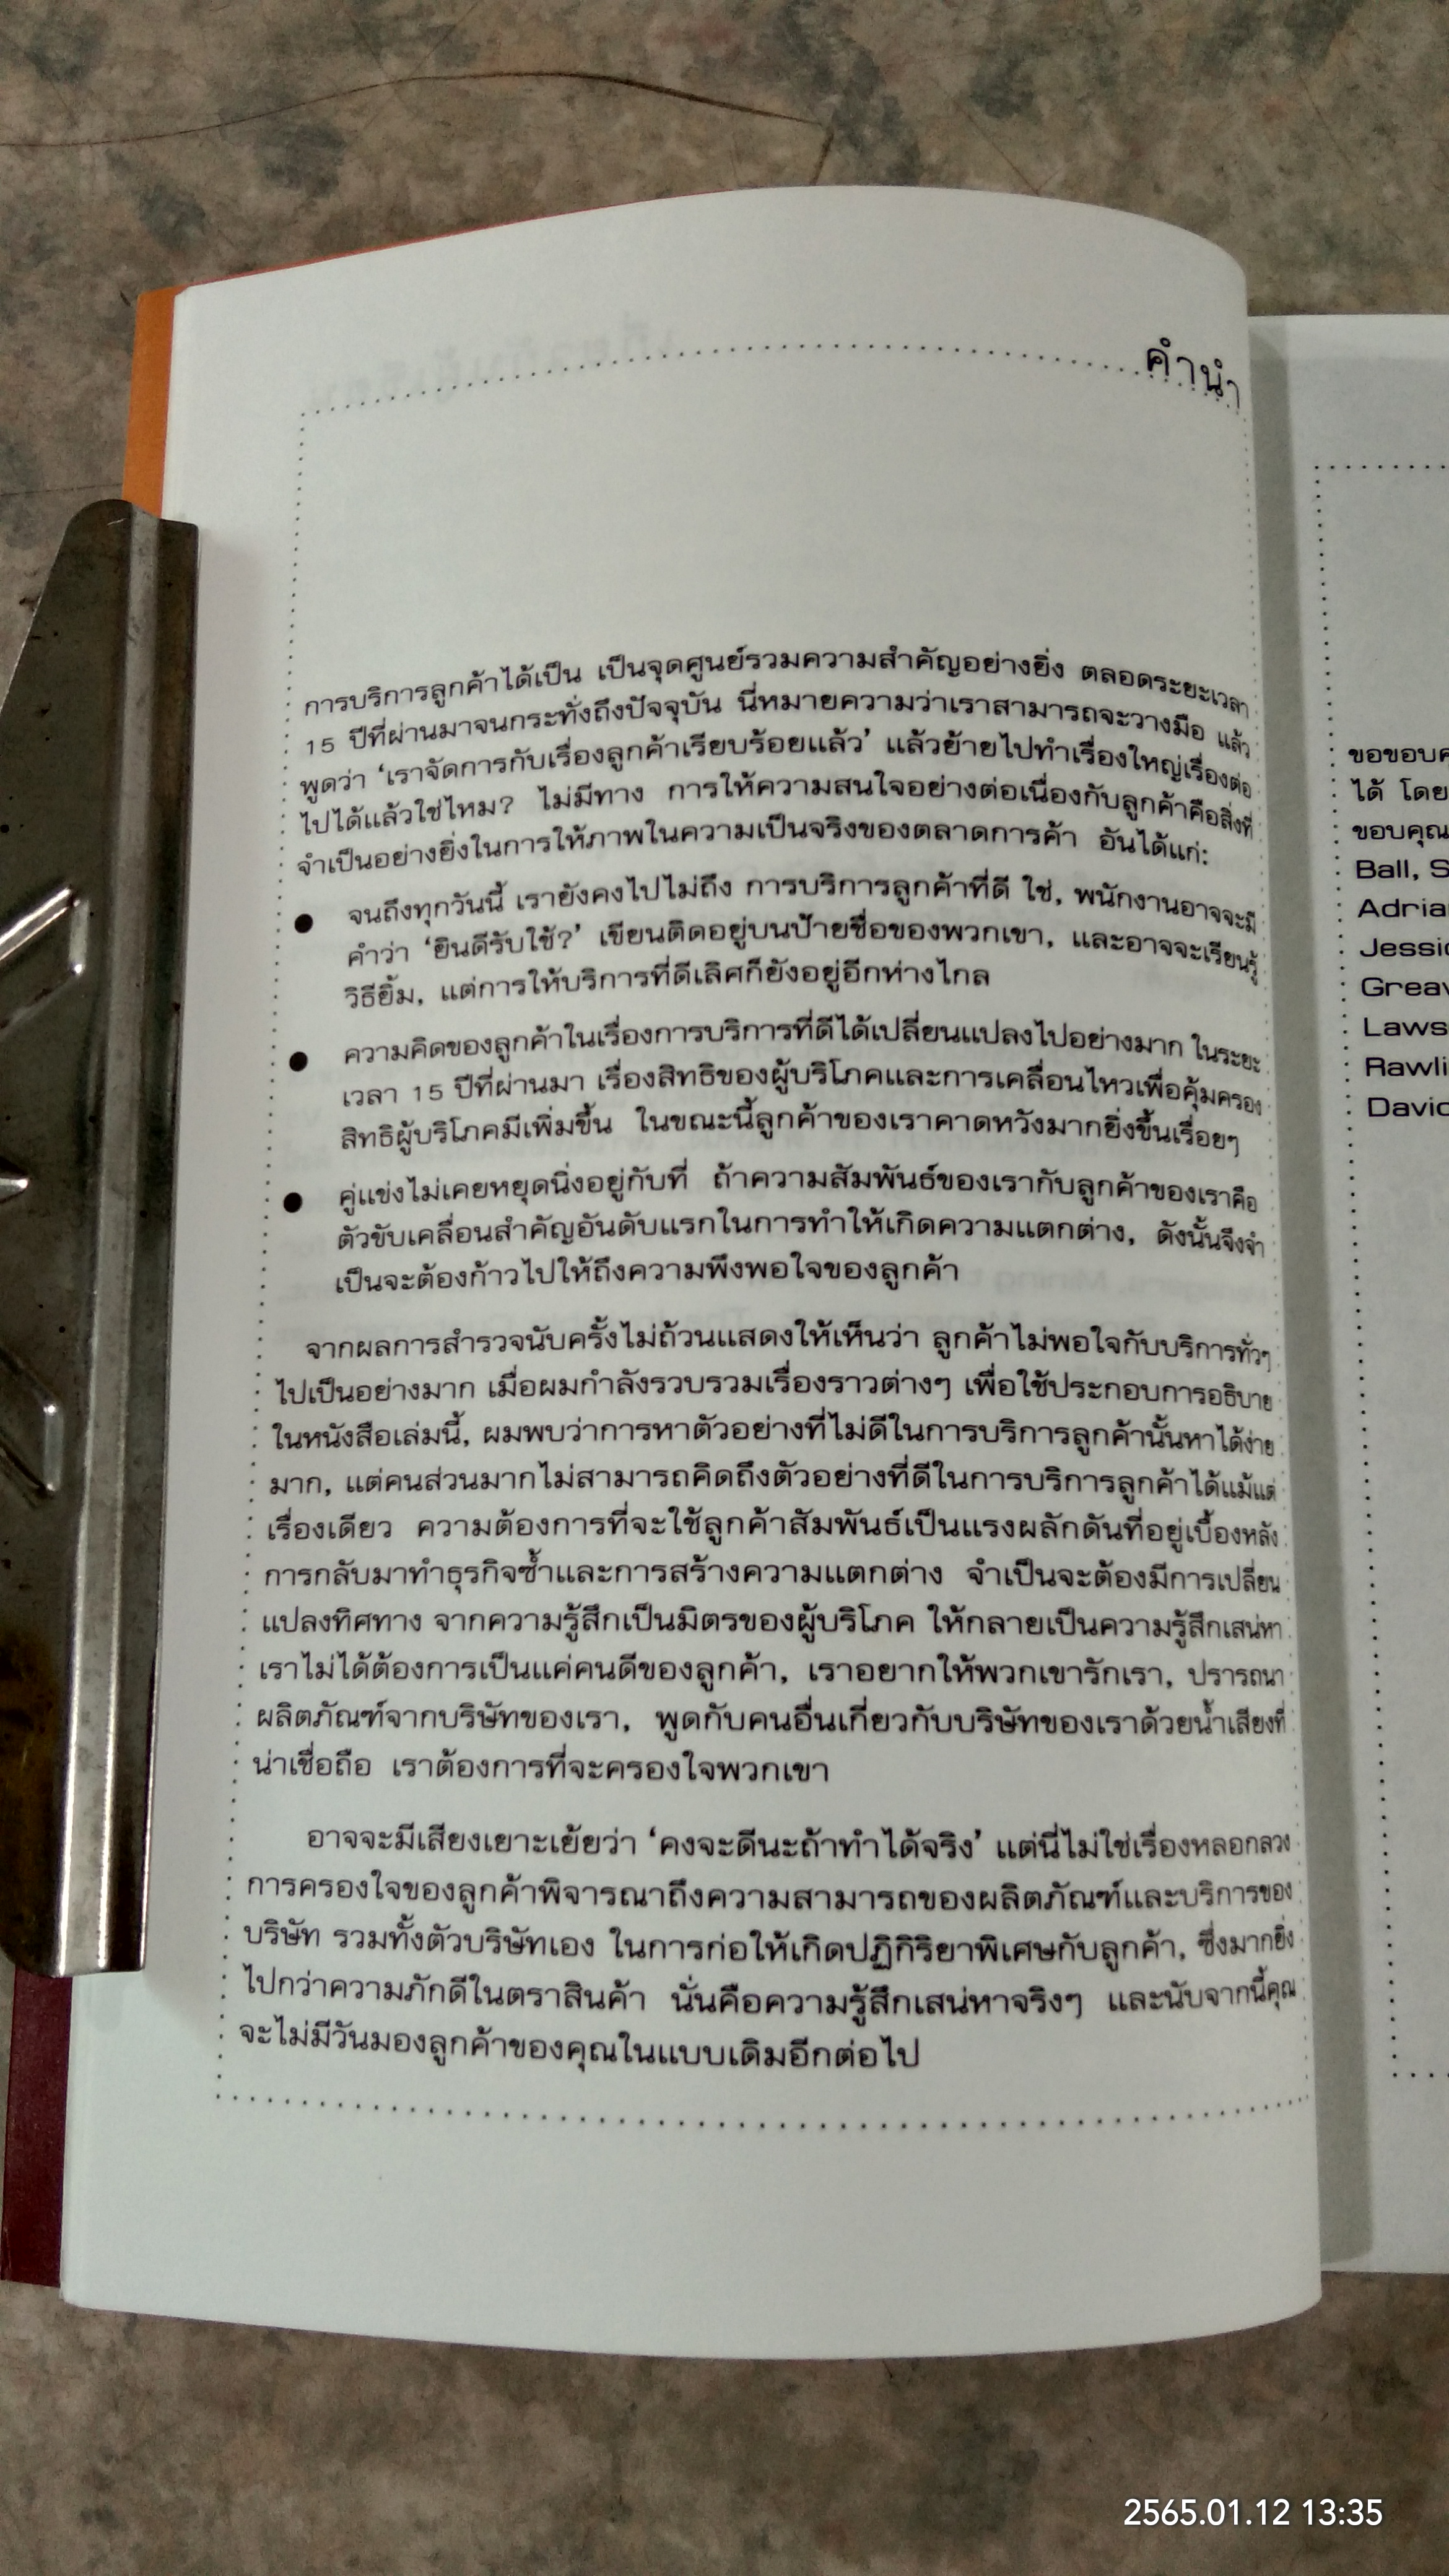 คำนำ
การบริการลูกค้าได้เป็น เป็นจุดศูนย์รวมความสำคัญอย่างยิ่ง ตลอดระยะเวลา
15 ปีที่ผ่านมาจนกระทั่งถึงปัจจุบัน นี่หมายความว่าเราสามารถจะวางมือ แล้ว
พูดว่า ‘เราจัดการกับเรื่องลูกค้าเรียบร้อยแล้ว’ แล้วย้ายไปทำเรื่องใหญ่เรื่องต่อ
ไปได้แล้วใช่ไหม? ไม่มีทาง การให้ความสนใจอย่างต่อเนื่องกับลูกค้าคือสิ่งที่
จำเป็นอย่างยิ่งในการให้ภาพในความเป็นจริงของตลาดการค้า อันได้แก่:
● จนถึงทุกวันนี้ เรายังคงไปไม่ถึง การบริการลูกค้าที่ดี ใช่, พนักงานอาจจะมี
คำว่า ‘ยินดีรับใช้?’ เขียนติดอยู่บนป้ายชื่อของพวกเขา, และอาจจะเรียนรู้
วิธียิ้ม, แต่การให้บริการที่ดีเลิศก็ยังอยู่อีกห่างไกล
● ความคิดของลูกค้าในเรื่องการบริการที่ดีได้เปลี่ยนแปลงไปอย่างมาก ในระยะ
เวลา 15 ปีที่ผ่านมา เรื่องสิทธิของผู้บริโภคและการเคลื่อนไหวเพื่อคุ้มครอง
สิทธิผู้บริโภคมีเพิ่มขึ้น ในขณะนี้ลูกค้าของเราคาดหวังมากยิ่งขึ้นเรื่อยๆ
● คู่แข่งไม่เคยหยุดนิ่งอยู่กับที่ ถ้าความสัมพันธ์ของเรากับลูกค้าของเราคือ
ตัวขับเคลื่อนสำคัญอันดับแรกในการทำให้เกิดความแตกต่าง, ดังนั้นจึงจำ
เป็นจะต้องก้าวไปให้ถึงความพึงพอใจของลูกค้า
จากผลการสำรวจนับครั้งไม่ถ้วนแสดงให้เห็นว่า ลูกค้าไม่พอใจกับบริการทั่วๆ
ไปเป็นอย่างมาก เมื่อผมกำลังรวบรวมเรื่องราวต่างๆ เพื่อใช้ประกอบการอธิบาย
ในหนังสือเล่มนี้, ผมพบว่าการหาตัวอย่างที่ไม่ดีในการบริการลูกค้านั้นหาได้ง่าย
มาก, แต่คนส่วนมากไม่สามารถคิดถึงตัวอย่างที่ดีในการบริการลูกค้าได้แม้แต่
เรื่องเดียว ความต้องการที่จะใช้ลูกค้าสัมพันธ์เป็นแรงผลักดันที่อยู่เบื้องหลัง
การกลับมาทำธุรกิจซ้ำและการสร้างความแตกต่าง จำเป็นจะต้องมีการเปลี่ยน
แปลงทิศทาง จากความรู้สึกเป็นมิตรของผู้บริโภค ให้กลายเป็นความรู้สึกเสน่หา
เราไม่ได้ต้องการเป็นแค่คนดีของลูกค้า, เราอยากให้พวกเขารักเรา, ปรารถนา
ผลิตภัณฑ์จากบริษัทของเรา, พูดกับคนอื่นเกี่ยวกับบริษัทของเราด้วยน้ำเสียงที่
น่าเชื่อถือ เราต้องการที่จะครองใจพวกเขา
อาจจะมีเสียงเยาะเย้ยว่า ‘คงจะดีนะถ้าทำได้จริง’ แต่นี่ไม่ใช่เรื่องหลอกลวง
การครองใจของลูกค้าพิจารณาถึงความสามารถของผลิตภัณฑ์และบริการของ
บริษัท รวมทั้งตัวบริษัทเอง ในการก่อให้เกิดปฏิกิริยาพิเศษกับลูกค้า, ซึ่งมากยิ่ง
ไปกว่าความภักดีในตราสินค้า นั่นคือความรู้สึกเสน่หาจริงๆ และนับจากนี้คุณ
จะไม่มีวันมองลูกค้าของคุณในแบบเดิมอีกต่อไป
ขอขอบค
ได้ โดย
ขอบคุณ
Ball, S
Adria
Jessic
Greav
Laws
Rawli
David
2565.01.12 13:35